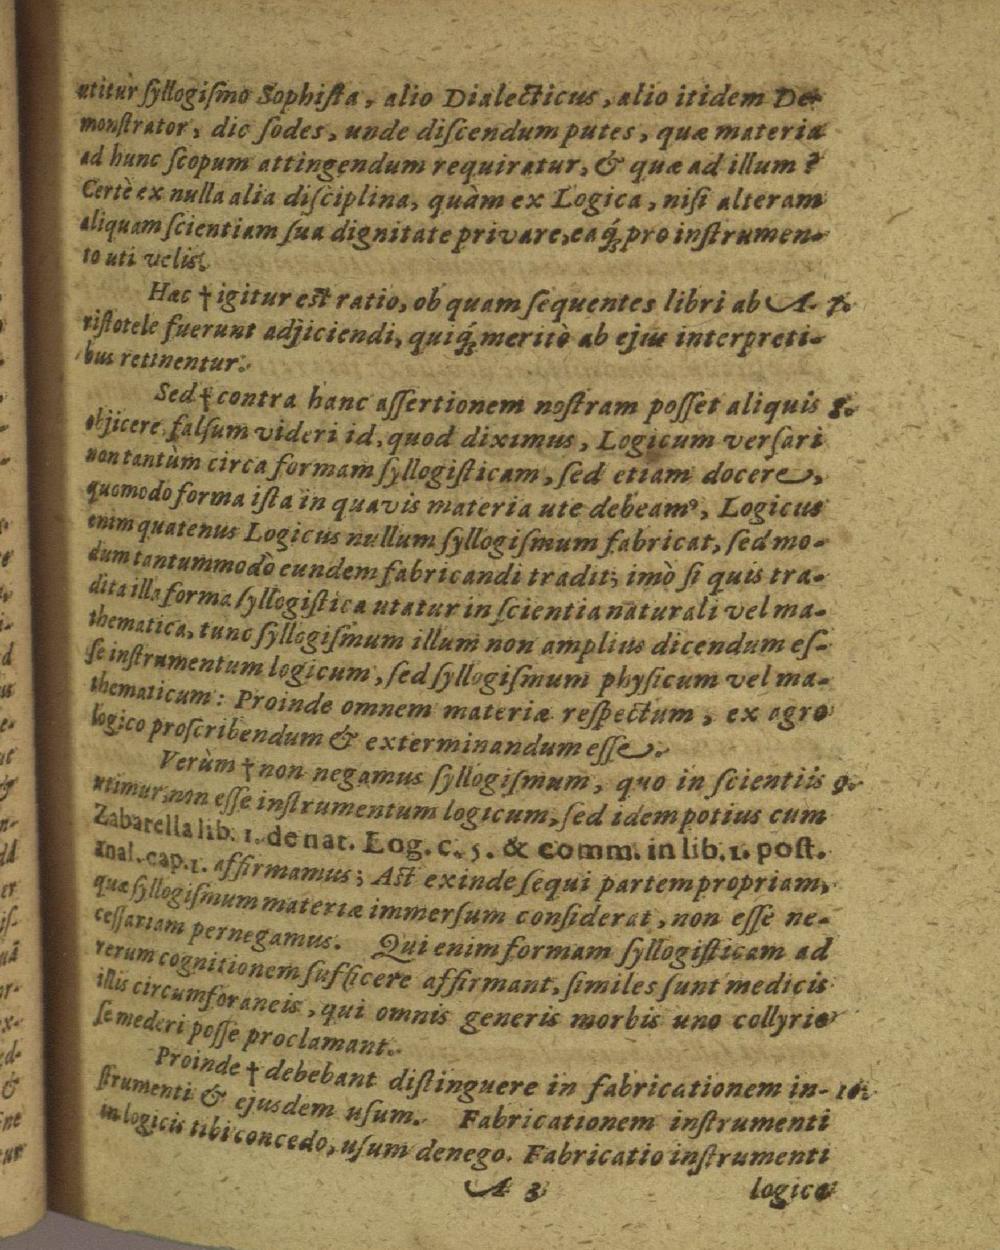 utitur syllogismo Sophista, alio Dialecticus, alio itidem De-
monstrator, dic sodes, unde discendum putes, quæ materia
ad hunc scopum attingendum requiratur, & quæ ad illum?
Certè ex nulla alia disciplina, quàm ex Logica, nisi alteram
aliquam scientiam sua dignitate privare, eaq́; pro instrumen-
to uti velis.
Hæc † igitur est ratio, ob quam sequentes libri ab A- 7.
ristotele fuerunt adjiciendi, quiq́; meritò ab ejus interpreti-
bus retinentur.
Sed † contra hanc assertionem nostram posset aliquis 8.
objicere falsum videri id, quod diximus, Logicum versari
non tantùm circa formam syllogisticam, sed etiam docere,
quomodo forma ista in quavis materia ute debeamꝰ, Logicus
enim quatenus Logicus nullum syllogismum fabricat, sed mo-
dum tantummodò eundem fabricandi tradit; imò si quis tra-
dita illa forma syllogistica utatur in scientia naturali vel ma-
thematica, tunc syllogismum illum non amplius dicendum es-
se instrumentum logicum, sed syllogismum physicum vel ma-
thematicum: Proinde omnem materiæ respectum, ex agro
logico proscribendum & exterminandum esse.
Verùm † non negamus syllogismum, quo in scientiis 9.
utimur, non esse instrumentum logicum, sed idem potius cum
Zabarella lib. 1. de nat. Log. c. 5. & comm. in lib. 1. post.
anal. cap. 1. affirmamus; Ast exinde sequi partem propriam,
quæ syllogismum materiæ immersum considerat, non esse ne-
cessariam pernegamus. Qui enim formam syllogisticam ad
rerum cognitionem sufficere affirmant, similes sunt medicis
illis circumforaneis, qui omnis generis morbis uno collyrio
se mederi posse proclamant.
Proinde † debebant distinguere in fabricationem in- 10.
strumenti & ejusdem usum. Fabricationem instrumenti
in logicis tibi concedo, usum denego. Fabricatio instrumenti
A 3 logica